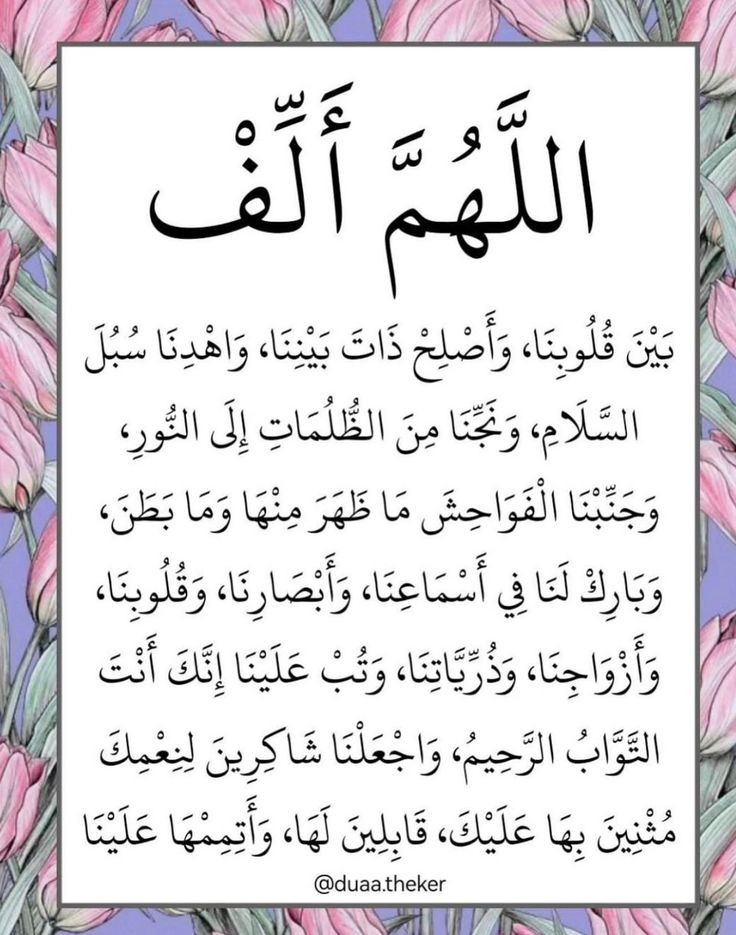 اللَّهُمَّ أَلِّفْ
بَيْنَ قُلُوبِنَا، وَأَصْلِحْ ذَاتَ بَيْنِنَا، وَاهْدِنَا سُبُلَ
السَّلَامِ، وَنَجِّنَا مِنَ الظُّلُمَاتِ إِلَى النُّورِ،
وَجَنِّبْنَا الْفَوَاحِشَ مَا ظَهَرَ مِنْهَا وَمَا بَطَنَ،
وَبَارِكْ لَنَا فِي أَسْمَاعِنَا، وَأَبْصَارِنَا، وَقُلُوبِنَا،
وَأَزْوَاجِنَا، وَذُرِّيَّاتِنَا، وَتُبْ عَلَيْنَا إِنَّكَ أَنْتَ
التَّوَّابُ الرَّحِيمُ، وَاجْعَلْنَا شَاكِرِينَ لِنِعْمِكَ
مُثْنِينَ بِهَا عَلَيْكَ، قَابِلِينَ لَهَا، وَأَتِمِمْهَا عَلَيْنَا
@duaa.theker